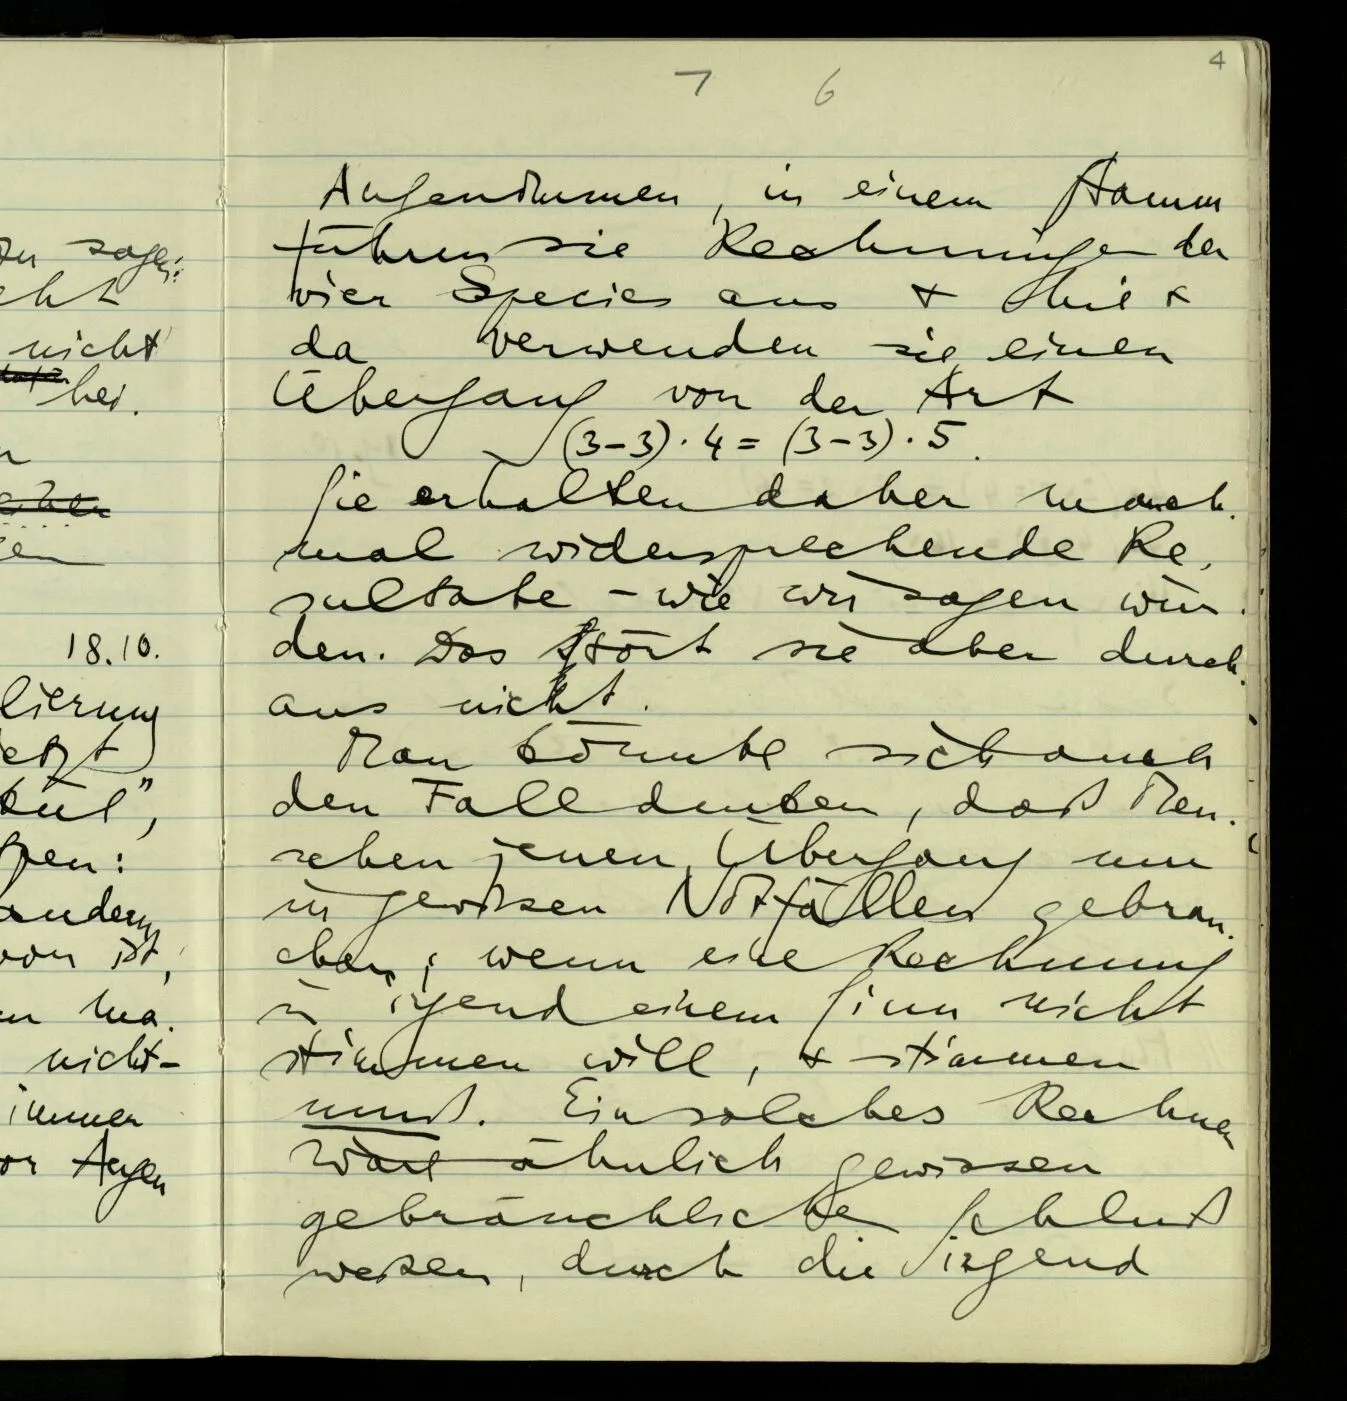 4
7 6
Angenommen, in einem Stamm
führen sie Rechnungen der
vier Species aus &
da verwenden sie einen
Übergang von der Art
(3-3)·4 = (3-3)·5.
Sie erhalten daher manch-
mal widersprechende Re-
sultate – wie wir sagen wür-
den. Das stört sie aber durch-
aus nicht.
Man könnte sich auch
den Fall denken, daß Men-
schen jenen Übergang nur
in gewissen Notfällen gebrau-
chen; wenn eine Rechnung
in irgend einem Sinn nicht
stimmen will, & stimmen
muß. Ein solches Rechnen
wäre ähnlich gewissen
gebräuchlichen Schluß
weisen, durch die irgend
zu sagen:
nicht
bei.
18.10.
lierung
jetzt
andern
von ist,
ma-
nicht-
immer
vor Augen